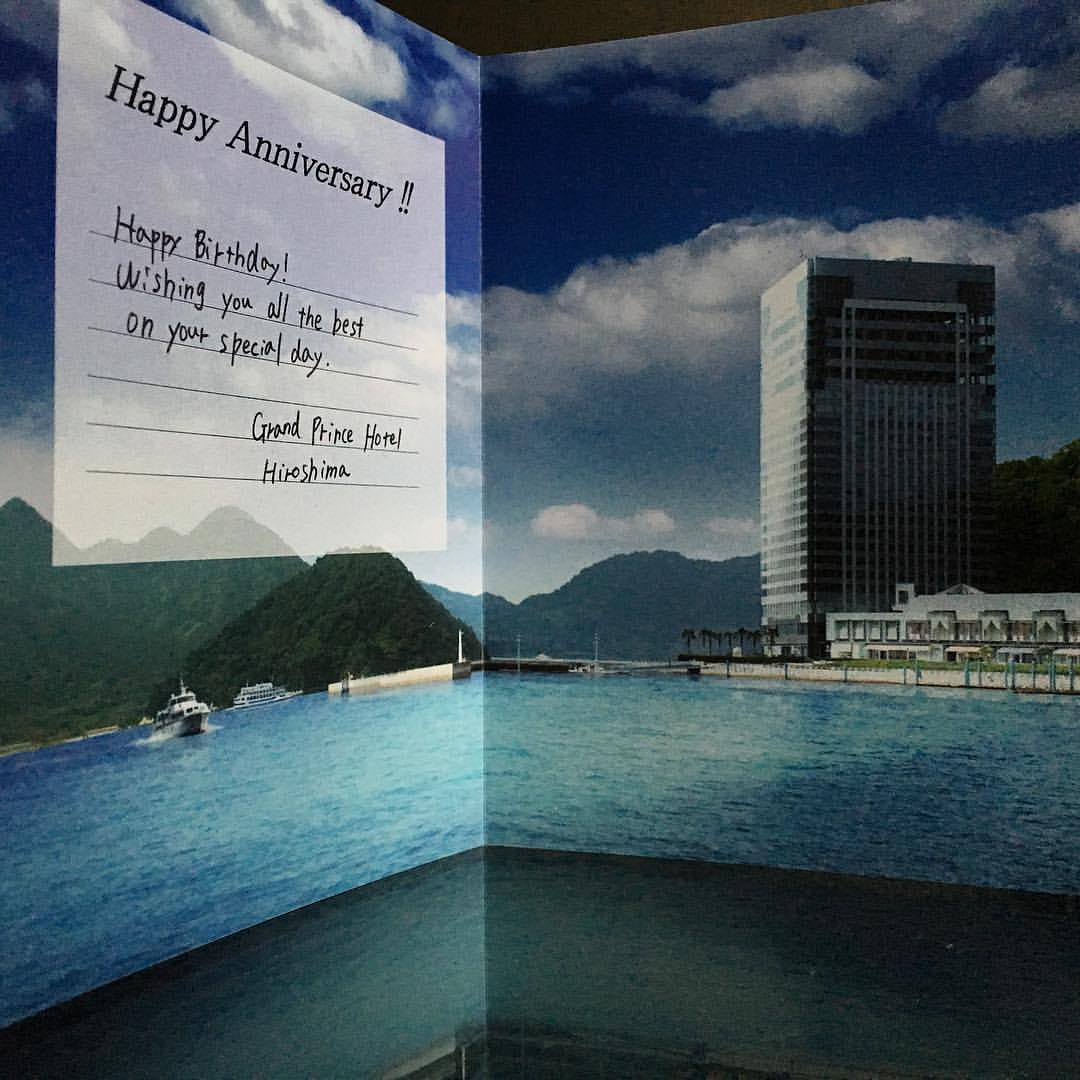 Happy Anniversary !!
Happy Birthday!
Wishing you all the best
on your special day.
Grand Prince Hotel
Hiroshima